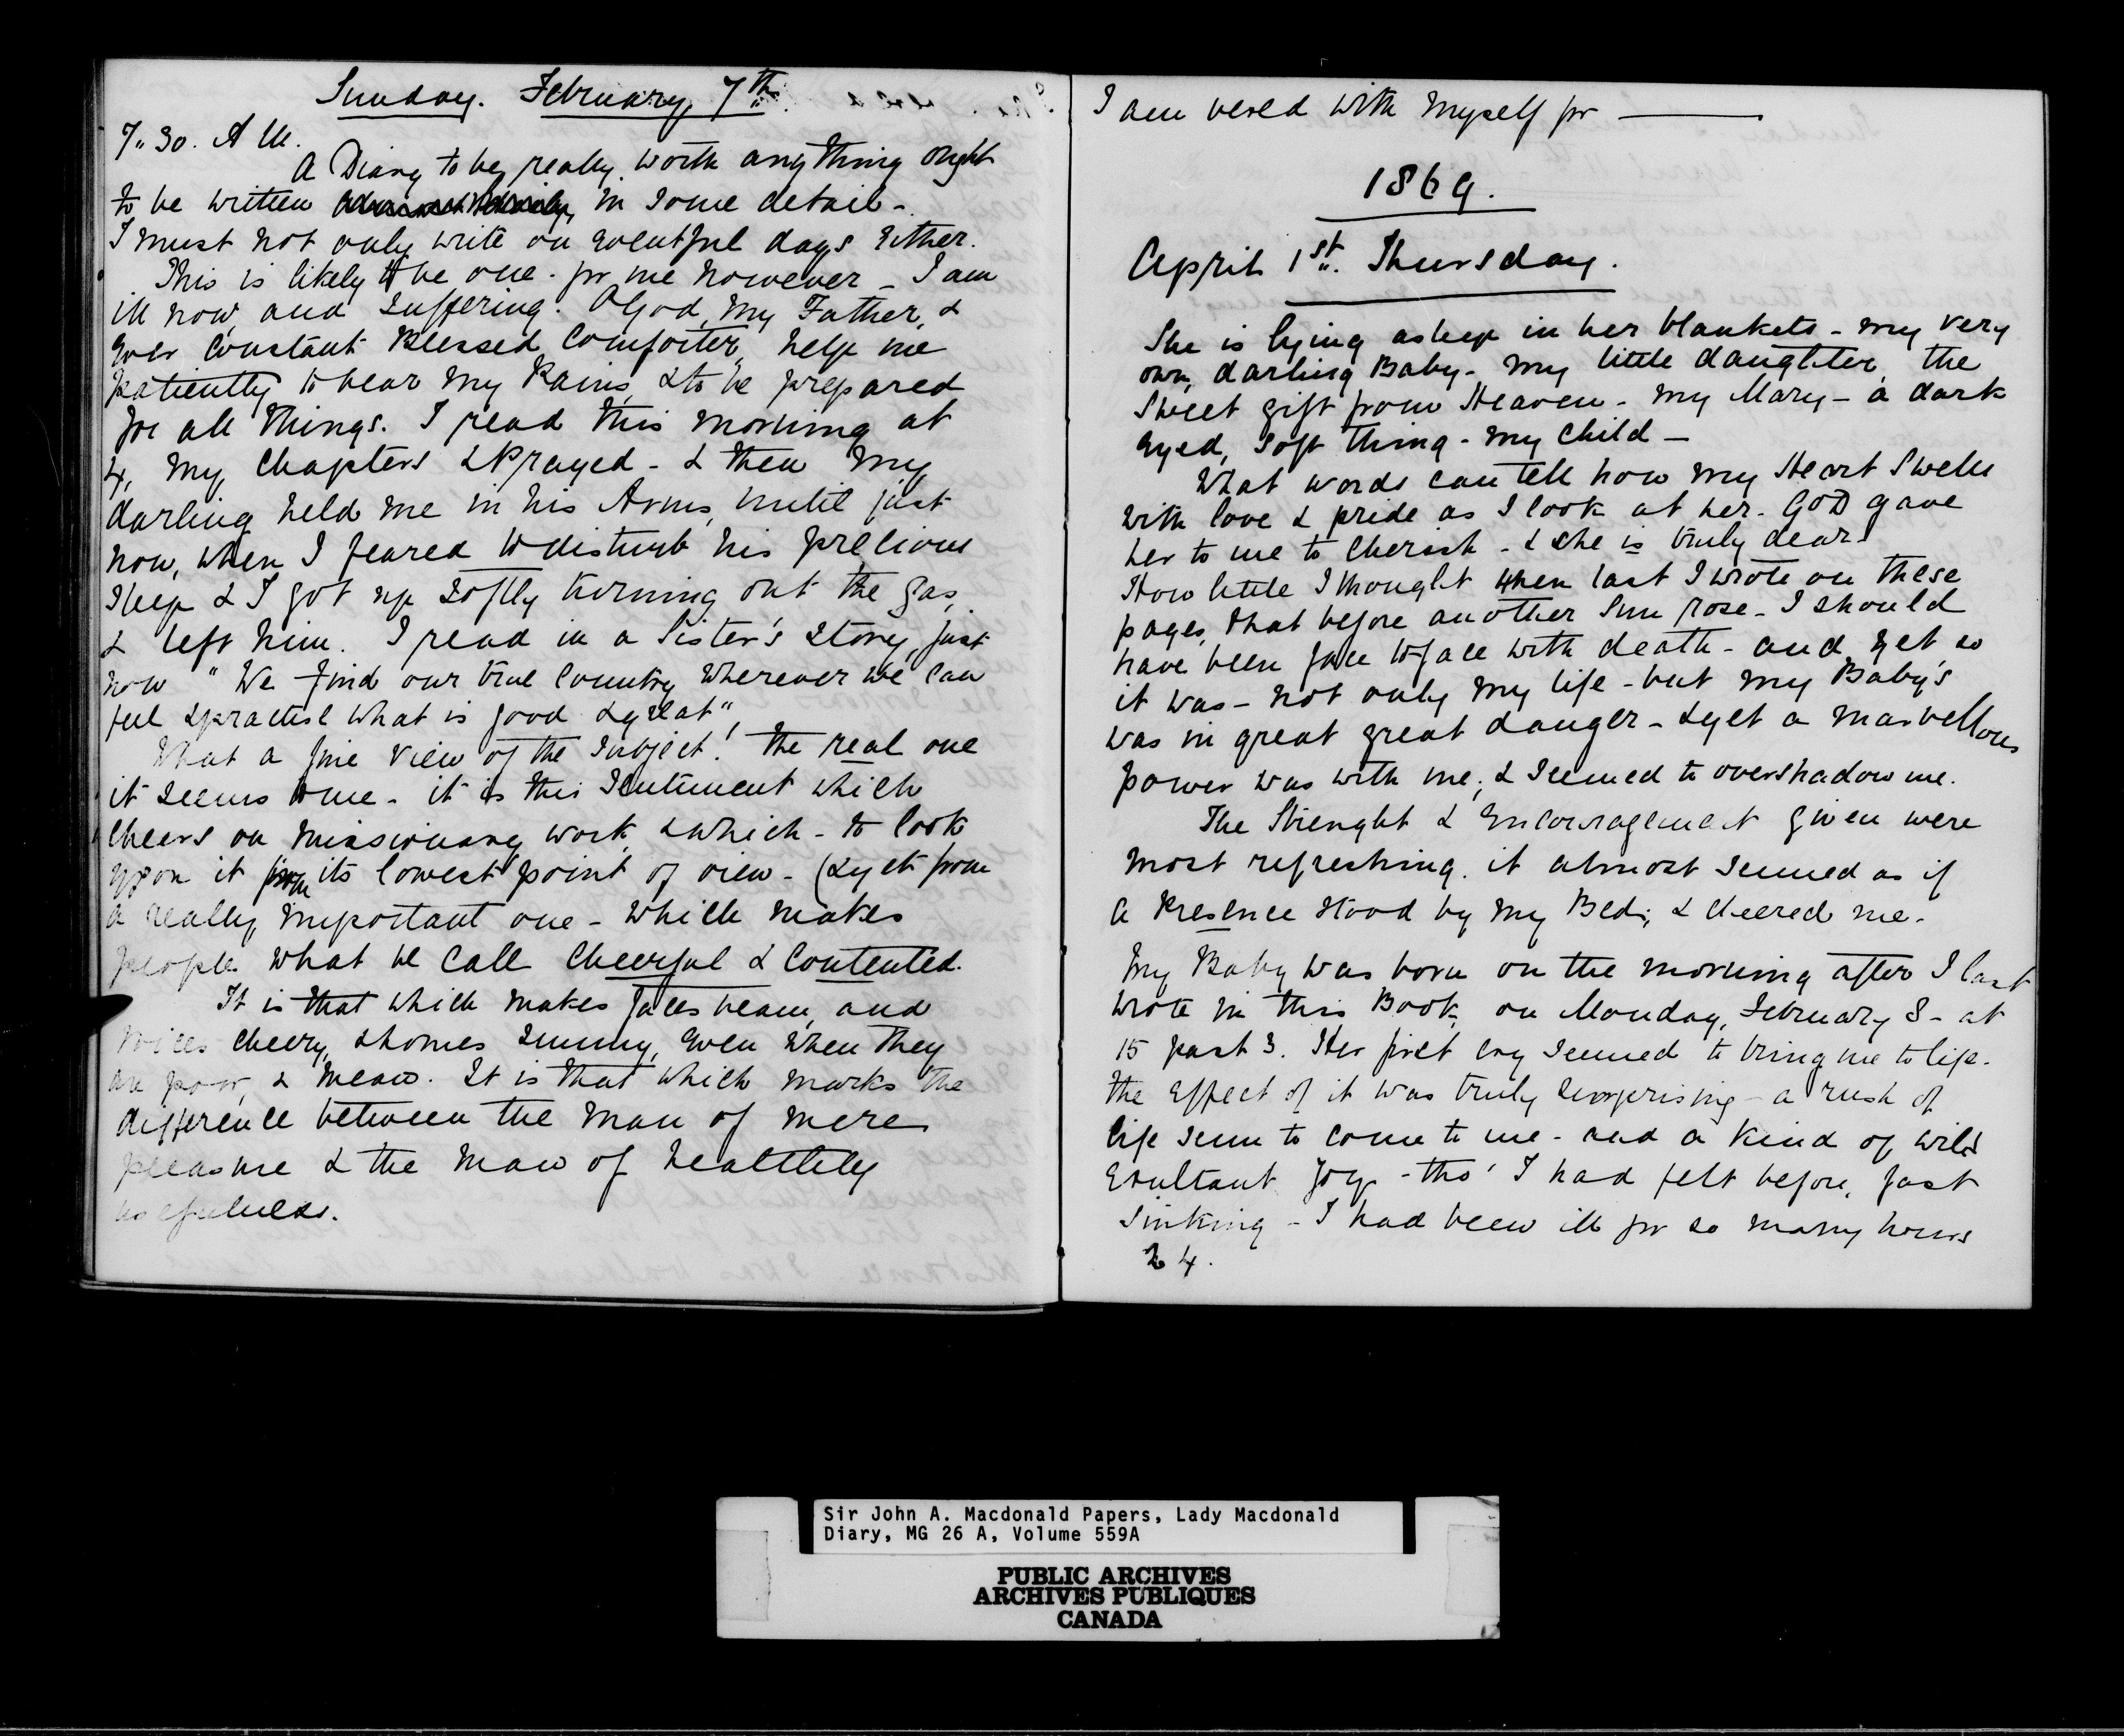 Sunday. February, 7th.
7.30. A M.
A Diary to be, really, worth anything ought
to be written in some detail -
I must not only write on eventful days either.
This is likely to be one - for me however - I am
ill now, and suffering. O God, my Father, &
ever constant Blessed Comforter, help me
patiently to bear my Pains, & to be prepared
for all things. I read this morning at
4, my Chapters & Prayed - & then my
darling held me in his Arms, until just
now, when I feared to disturb his precious
sleep & I got up softly turning out the gas,
& left him. I read in a Sister's Story, just
now "We find our true Country wherever we can
feel & practise what is good & great"
What a fine view of the subject! the real one
it seems to me - it is this sentiment which
cheers on missionary work, & which - to look
upon it from its lowest point of view - (& yet from
a really important one - which makes
people what we call Cheerful & Contented.
It is that which makes faces beam, and
voices cheery, & homes sunny, even when they
are poor, & mean. It is that which marks the
difference between the man of mere
pleasure & the man of healthly
usefulness.
I am vexed with myself for ———
1869.
April 1st. Thursday.
She is lying asleep in her blankets - my very
own, darling Baby - my little daughter, the
sweet gift from Heaven - my Mary - a dark
eyed, soft thing - my child -
What words can tell how my Heart swells
with love & pride as I look at her. GOD gave
her to me to cherish - & she is truly dear.
How little I thought when last I wrote on these
pages, that before another Sun rose - I should
have been face to face with death - and yet so
it was - not only my life - but my Baby's
was in great great danger - & yet a marvellous
power was with me, & seemed to overshadow me.
The Strenght & Encouragement given were
most refreshing. it almost seemed as if
a Presence stood by my Bed; & cheered me.
My Baby was born on the morning after I last
wrote in this Book, on Monday, February 8 - at
15 past 3. Her first cry seemed to bring me to life.
the effect of it was truly surprising - a rush of
life seem to come to me - and a kind of wild
Exultant Joy - tho' I had felt before, fast
sinking - I had been ill for so many hours
24.
Sir John A. Macdonald Papers, Lady Macdonald
Diary, MG 26 A, Volume 559A
PUBLIC ARCHIVES
ARCHIVES PUBLIQUES
CANADA